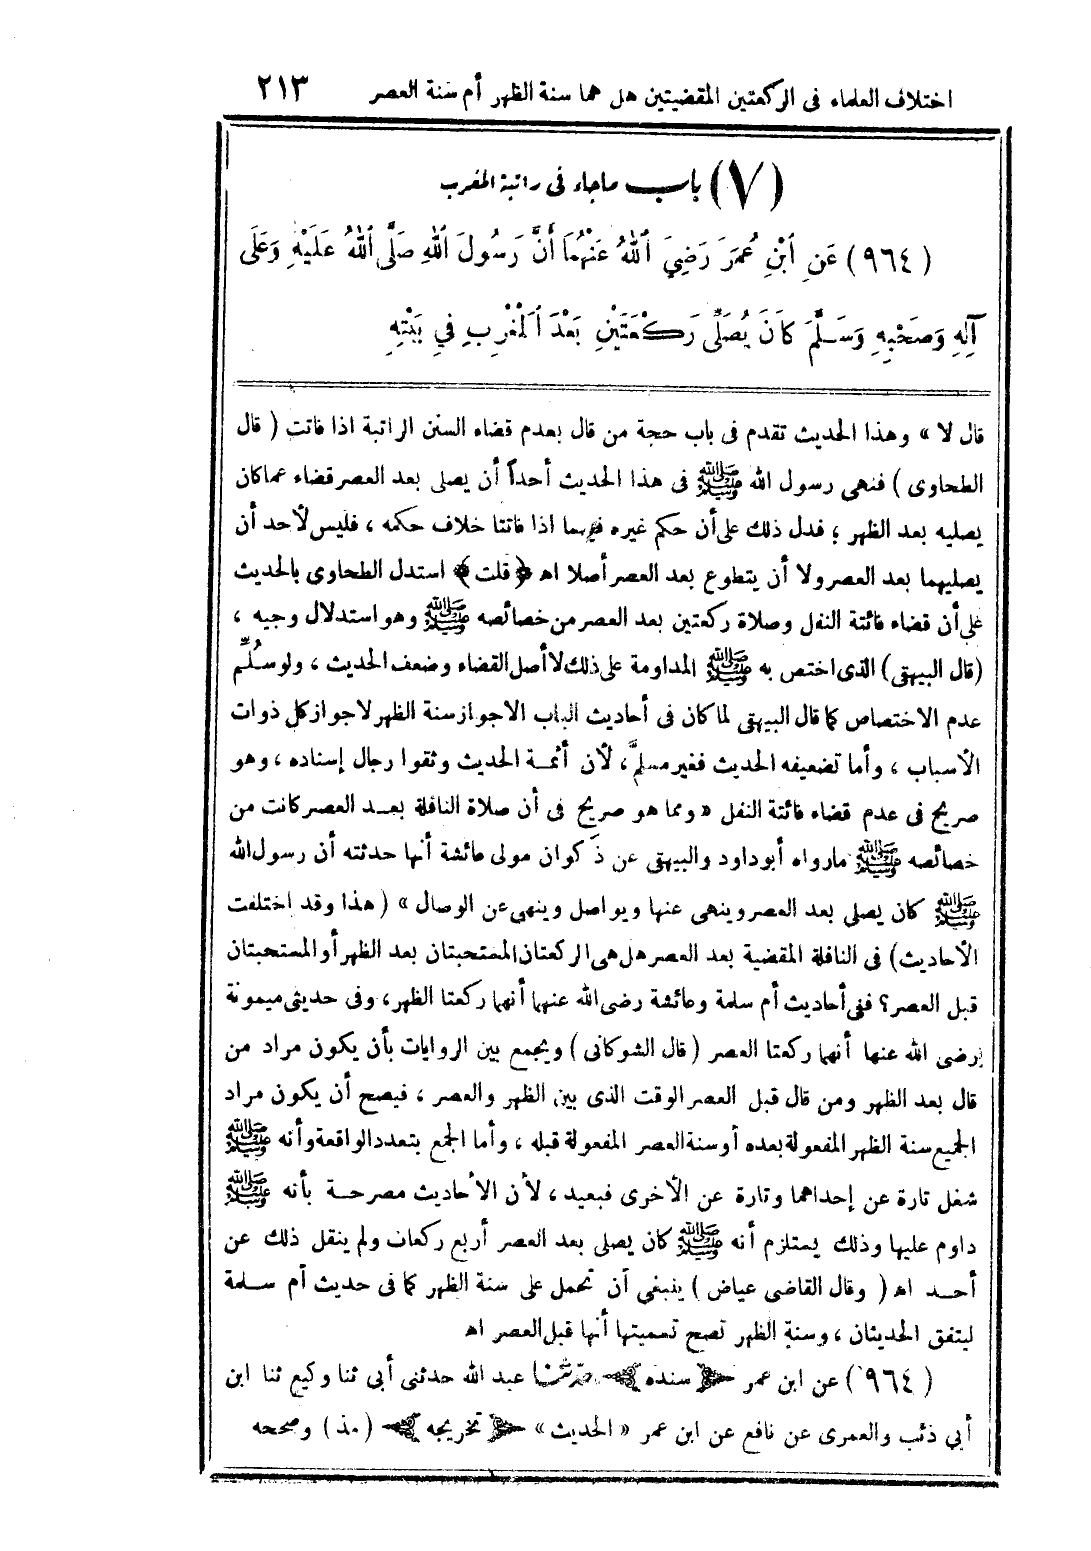 اختلاف العلماء فى الركعتين المقضيتين هل هما سنة الظهر أم سنة العصر ٢١٣
(٧) باب ماجاء فى راتبة المغرب
(٩٦٤) عَنِ ٱبْنِ عُمَرَ رَضِيَ ٱللهُ عَنْهُمَا أَنَّ رَسُولَ ٱللهِ صَلَّى ٱللهُ عَلَيْهِ وَعَلَى
آلِهِ وَصَحْبِهِ وَسَلَّمَ كَانَ يُصَلِّى رَكْعَتَيْنِ بَعْدَ ٱلْمَغْرِبِ فِي بَيْتِهِ
قال لا » وهذا الحديث تقدم فى باب حجة من قال بعدم قضاء السنن الراتبة اذا فاتت ( قال
الطحاوى ) فنهى رسول الله ﷺ فى هذا الحديث أحداً أن يصلى بعد العصر قضاء عما كان
يصليه بعد الظهر ؛ فدل ذلك على أن حكم غيره فيهما اذا فاتتا خلاف حكمه ، فليس لأحد أن
يصليهما بعد العصر ولا أن يتطوع بعد العصر أصلا اهـ ﴿ قلت ﴾ استدل الطحاوى بالحديث
على أن قضاء فائتة النفل وصلاة ركعتين بعد العصر من خصائصه ﷺ وهو استدلال وجيه ،
(قال البيهقى) الذى اختص به ﷺ المداومة على ذلك لا أصل القضاء وضعف الحديث ، ولو سُلّم
عدم الاختصاص كما قال البيهقى لما كان فى أحاديث الباب الا جواز سنة الظهر لا جواز كل ذوات
الأسباب ، وأما تضعيفه الحديث فغير مسلَّم، لأن أئمة الحديث وثقوا رجال إسناده ، وهو
صريح فى عدم قضاء فائتة النفل « ومما هو صريح فى أن صلاة النافلة بعد العصر كانت من
خصائصه ﷺ مارواه أبوداود والبيهقى عن ذكوان مولى عائشة أنها حدثته أن رسول الله
ﷺ كان يصلى بعد العصر وينهى عنها ويواصل وينهى عن الوصال » ( هذا وقد اختلفت
الأحاديث) فى النافلة المقضية بعد العصر هل هى الركعتان المستحبتان بعد الظهر أو المستحبتان
قبل العصر؟ ففى أحاديث أم سلمة وعائشة رضى الله عنهما أنهما ركعتا الظهر، وفى حديثى ميمونة
رضى الله عنها أنهما ركعتا العصر ( قال الشوكانى ) ويجمع بين الروايات بأن يكون مراد من
قال بعد الظهر ومن قال قبل العصر الوقت الذى بين الظهر والعصر ، فيصح أن يكون مراد
الجميع سنة الظهر المفعولة بعده أو سنة العصر المفعولة قبله ، وأما الجمع بتعدد الواقعة وأنه ﷺ
شغل تارة عن إحداهما وتارة عن الأخرى فبعيد ، لأن الأحاديث مصرحة بأنه ﷺ
داوم عليها وذلك يستلزم أنه ﷺ كان يصلى بعد العصر أربع ركعات ولم ينقل ذلك عن
أحد اهـ ( وقال القاضى عياض ) ينبغى أن تحمل على سنة الظهر كما فى حديث أم سلمة
ليتفق الحديثان ، وسنة الظهر تصح تسميتها أنها قبل العصر اهـ
(٩٦٤) عن ابن عمر ﴿ سنده ﴾ حدثنا عبد الله حدثنى أبى ثنا وكيع ثنا ابن
أبي ذئب والعمرى عن نافع عن ابن عمر « الحديث » ﴿ تخريجه ﴾ (مذ) وصححه